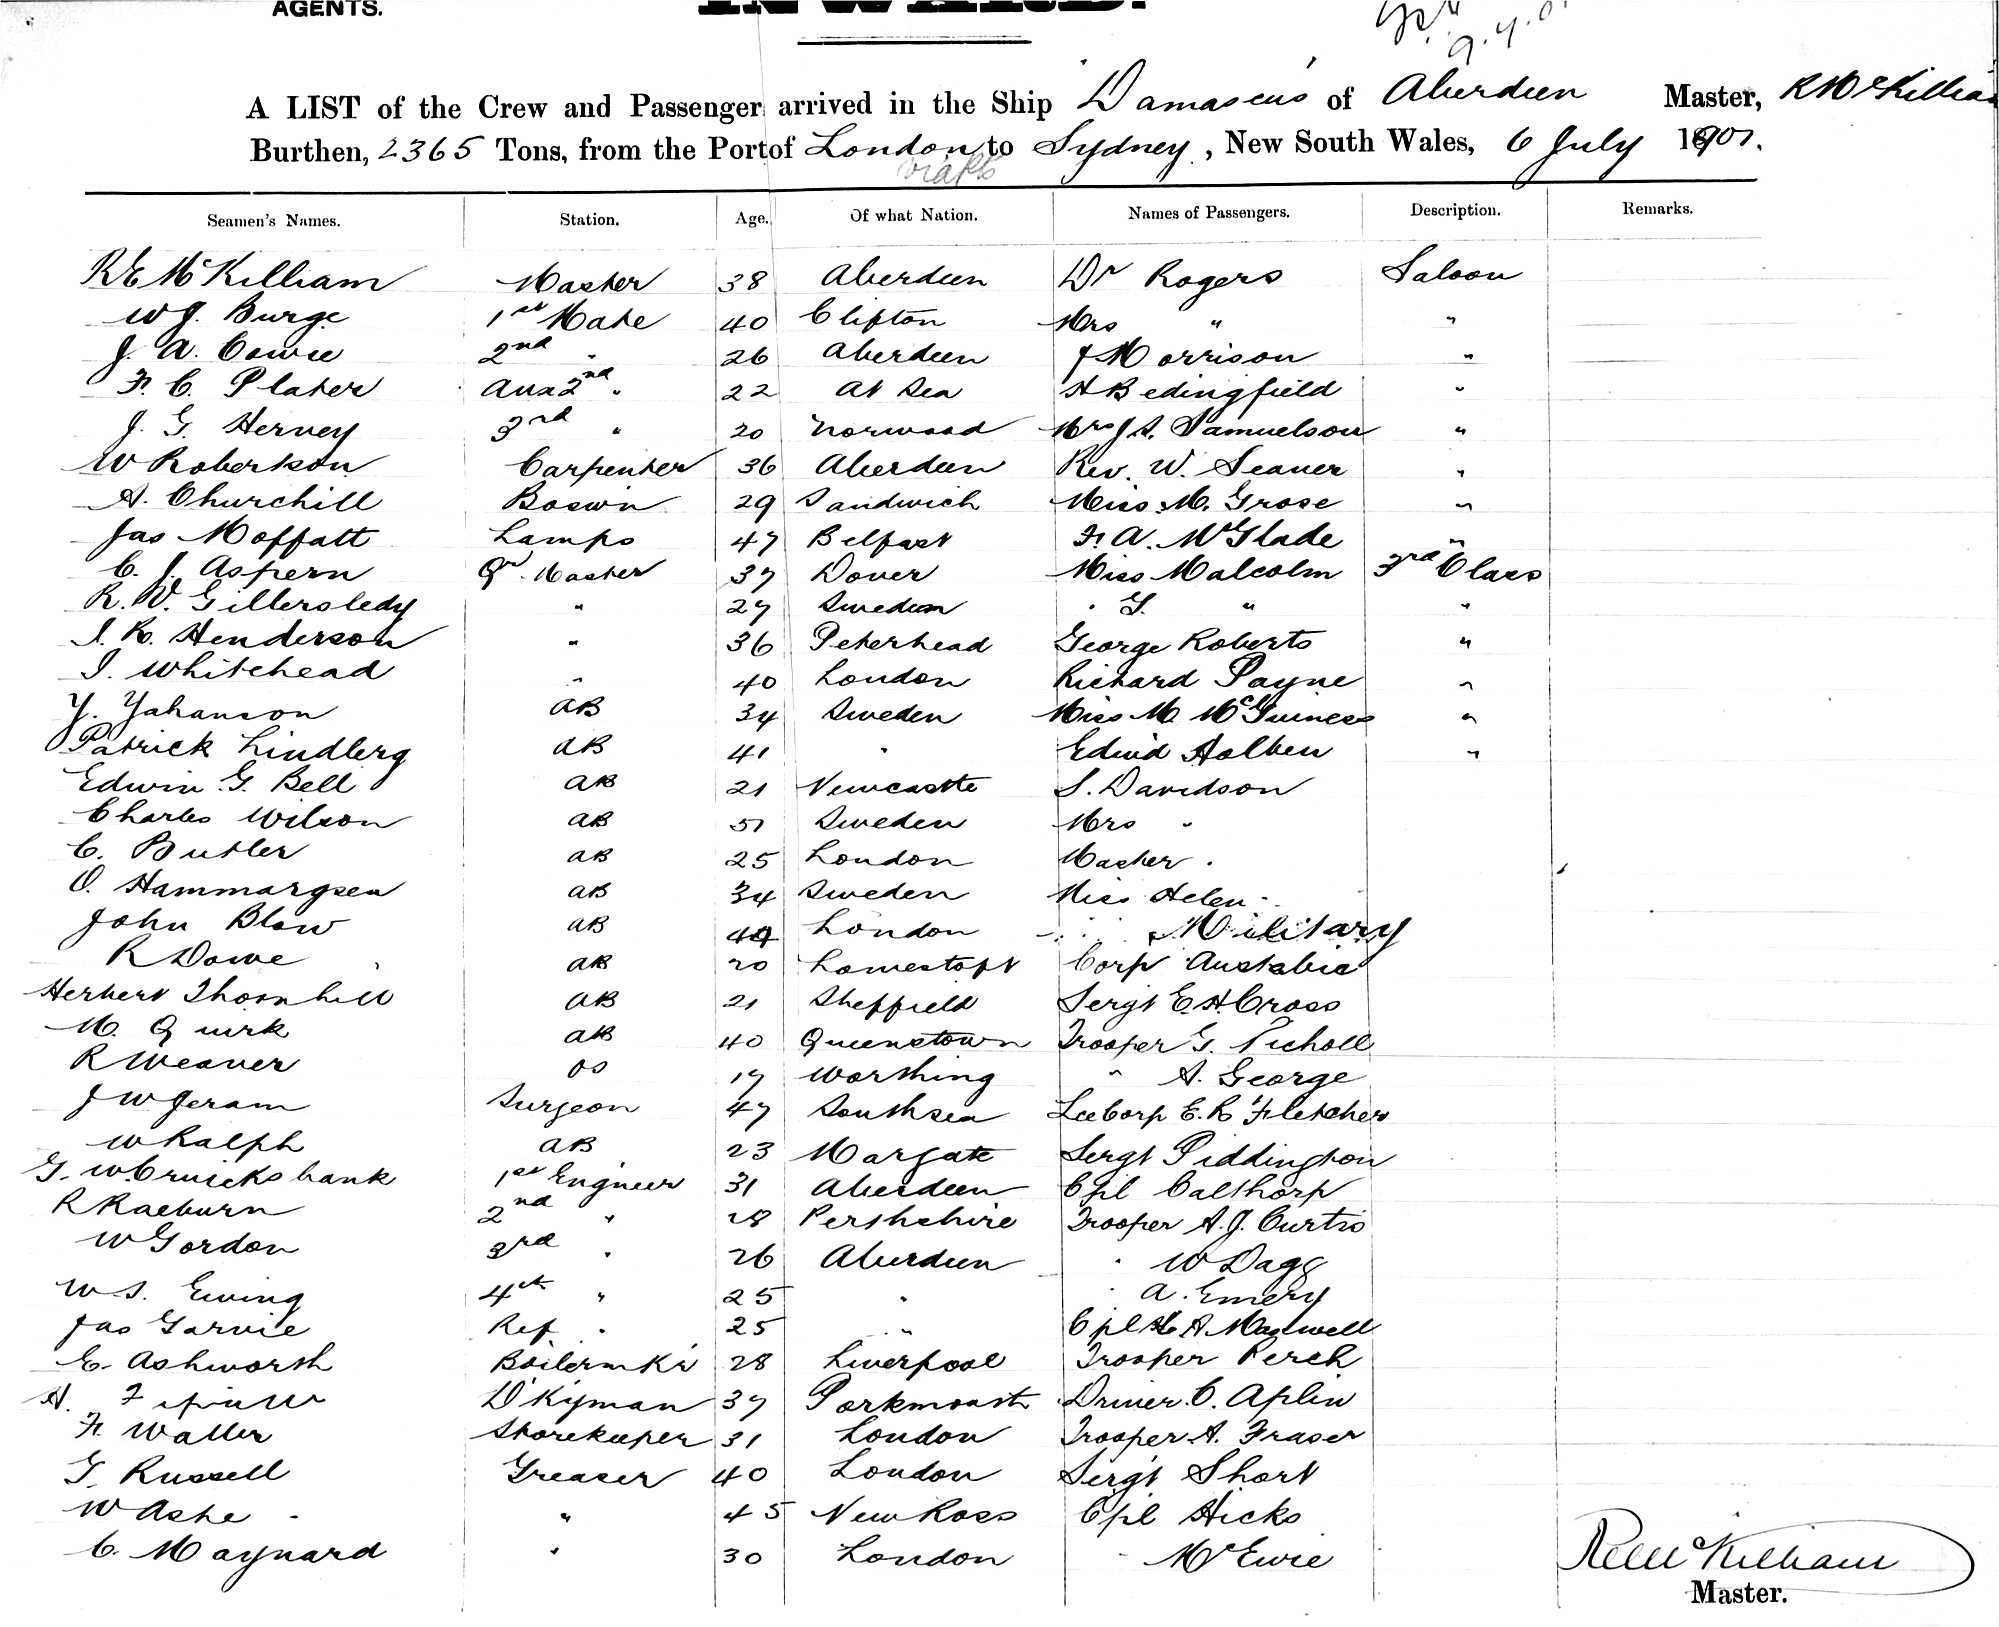 AGENTS. INWARD.
A LIST of the Crew and Passenger arrived in the Ship Damascus of Aberdeen Master, R McKilliam
Burthen, 2365 Tons, from the Port of London to Sydney, New South Wales, 6 July 1901.
Seamen's Names. Station. Age. Of what Nation. Names of Passengers. Description. Remarks.
R E McKilliam Master 38 Aberdeen Dr Rogers Saloon
W J. Burge 1st Mate 40 Clifton Mrs " "
J. A. Cowie 2nd " 26 Aberdeen J Morrison "
F. C. Plater Aux 2nd " 22 At Sea H Bedingfield "
J. G. Hervey 3rd " 20 Norwood Mrs J A. Samuelson "
W Robertson Carpenter 36 Aberdeen Rev. W. Seaver "
A. Churchill Boswn 29 Sandwich Miss M. Grose "
Jas Moffatt Lamps 47 Belfast F. A. McGlade "
C. J. Aspern Qr. Master 37 Dover Miss Malcolm 3rd Class
R. W. Gillersledy " 27 Sweden " G. " "
J. R. Henderson " 36 Peterhead George Roberts "
I. Whitehead " 40 London Richard Payne "
Y. Yahanson AB 34 Sweden Miss M. McGuiness "
Patrick Lindberg AB 41 " Edwd Holben "
Edwin G. Bell AB 21 Newcastle S. Davidson
Charles Wilson AB 51 Sweden Mrs "
C. Butler AB 25 London Master "
O. Hammargsen AB 34 Sweden Miss Helen "
John Blow AB 49 London Military
R Dowe AB 20 Lowestoft Corp
Herbert Thornhill AB 21 Sheffield Sergt E. H. Cross
M. Quirk AB 40 Queenstown Trooper G. Nicholl
R Weaver OS 17 Worthing " A. George
J W Jeram Surgeon 47 Southsea Lce Corp E. R. Fletcher
W Ralph AB 23 Margate Sergt Piddington
G. W. Cruickshank 1st Engineer 31 Aberdeen Cpl Calthorp
R Raeburn 2nd " 28 Perthshire Trooper A. J. Curtis
W Gordon 3rd " 26 Aberdeen " W Dagg
W S. Ewing 4th " 25 " " A. Emery
Jas Garvie Ref. " 25 " Cpl A Maxwell
E. Ashworth Boilermkr 28 Liverpool Trooper Perch
H. D'kyman 37 Driver C. Aplin
F. Waller Storekeeper 31 London Trooper A. Fraser
G. Russell Greaser 40 London Sergt Short
W Ashe " 45 New Ross Cpl Hicks
C. Maynard " 30 London " McEwie
R E McKilliam
Master.